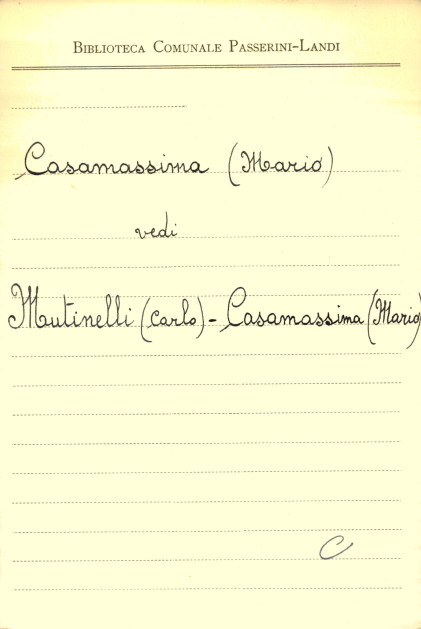 Biblioteca Comunale Passerini-Landi
Casamassima (Mario)
vedi
Mutinelli (Carlo) - Casamassima (Mario)
C